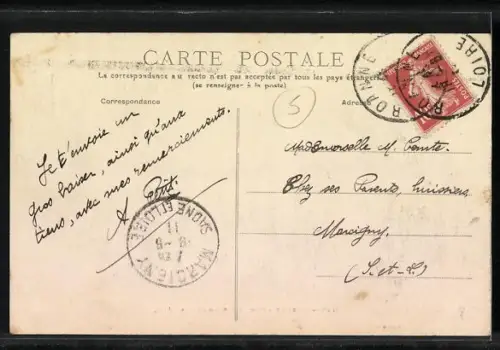 CARTE POSTALE
La correspondance au recto n'est pas acceptée par tous les pays étrangers
(se renseigner à la poste)
Correspondance
Adresse
5
Je t'envoie un
gros baiser, ainsi qu'aux
tiens, avec mes remerciements.
A.
Mademoiselle M. Comte.
Chez ses Parents, huissiers
Marcigny
(S.-et-L.)
ROANNE
LOIRE
MARCIGNY
SAONE ET LOIRE
11